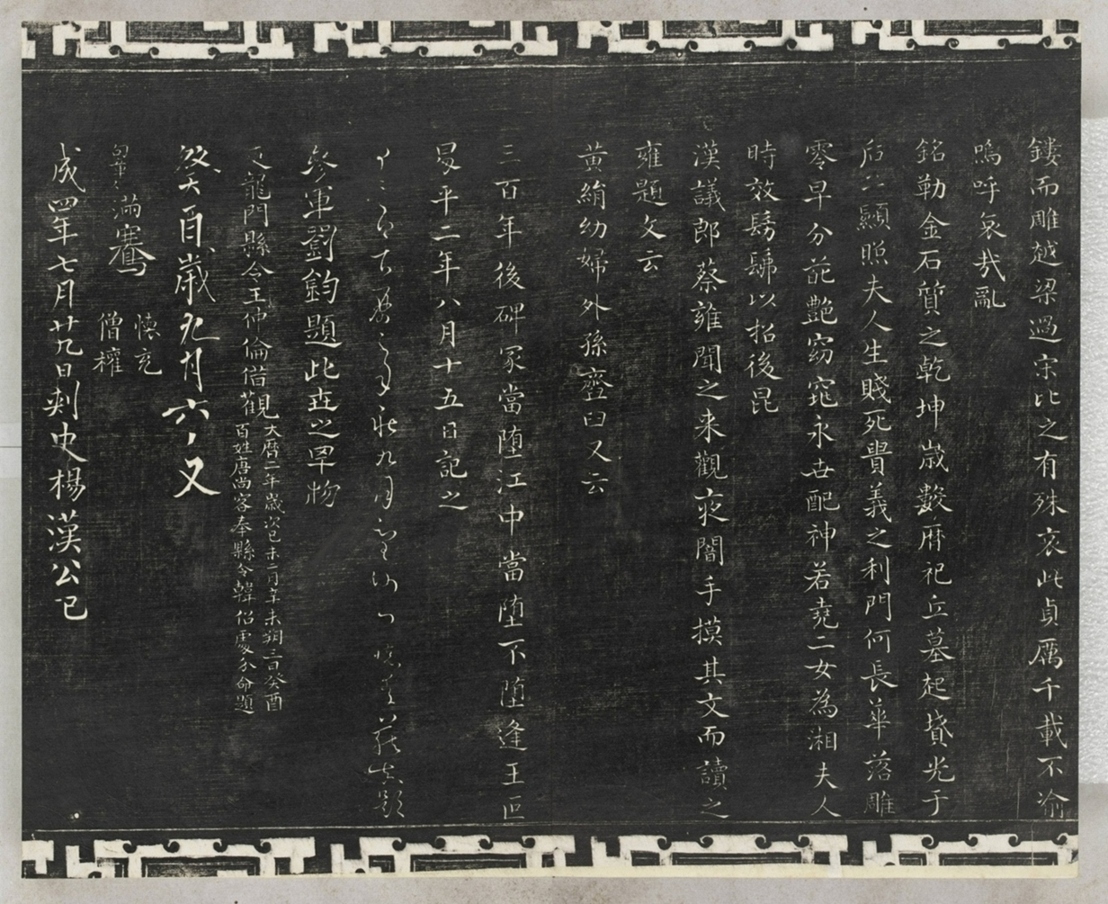 鏤而雕越梁過宋比之有殊哀此貞厲千載不渝
嗚呼哀哉亂
銘勒金石質之乾坤歲數曆祀丘墓起墳光于
后土顯照夫人生賤死貴義之利門何長華落雕
零早分葩艷窈窕永世配神若堯二女為湘夫人
時效髣髴以招後昆
漢議郎蔡雍聞之来觀夜闇手摸其文而讀之
雍題文云
黃絹幼婦外孫虀臼又云
三百年後碑冢當堕江中當堕不堕逢王叵
昇平二年八月十五日記之
参軍劉鈞題此世之罕物
龍門縣令王仲倫借觀
大曆二年歲次己未二月辛未朔三日癸酉
百姓唐尚客奉縣令韓偘處分命題
癸酉歲九月六
滿騫
懷充
僧權
成四年七月廿九日刺史楊漢公記